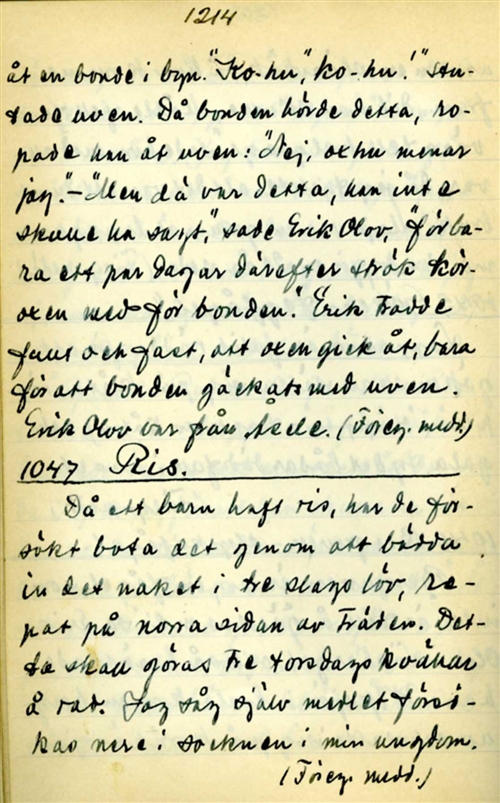 1214
åt en bonde i byn. "Ko-hu", "ko-hu!" stu-
tade uven. Då bonden hörde detta, ro-
pade han åt uven: "Nej, oxhu menar
jag." – "Men då var detta, han inte
skulle ha sagt," sade Erik Olov, "för ba-
ra ett par dagar därefter strök kör-
oxen med för bonden." Erik trodde
fullt och fast, att oxen gick åt, bara
för att bonden gäckats med uven.
Erik Olov var från Åsele. (Föreg. medd.)
1047 Ris.
Då ett barn haft ris, har de för-
sökt bota det genom att bädda
in det naket i tre slags löv, re-
pat på norra sidan av träden. Det-
ta skall göras tre torsdagskvällar
å rad. Jag såg själv medlet försö-
kas nere i socknen i min ungdom.
(Föreg. medd.)